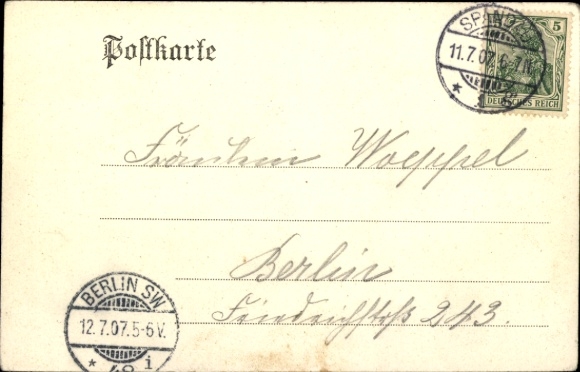 Postkarte
SPANDAU
11.7.07. 6-7N.
* 1
5
DEUTSCHES REICH
Fräulein Woeppel
Berlin
Friedrichstrß 243.
BERLIN SW
12.7.07. 5-6V.
* 48 i